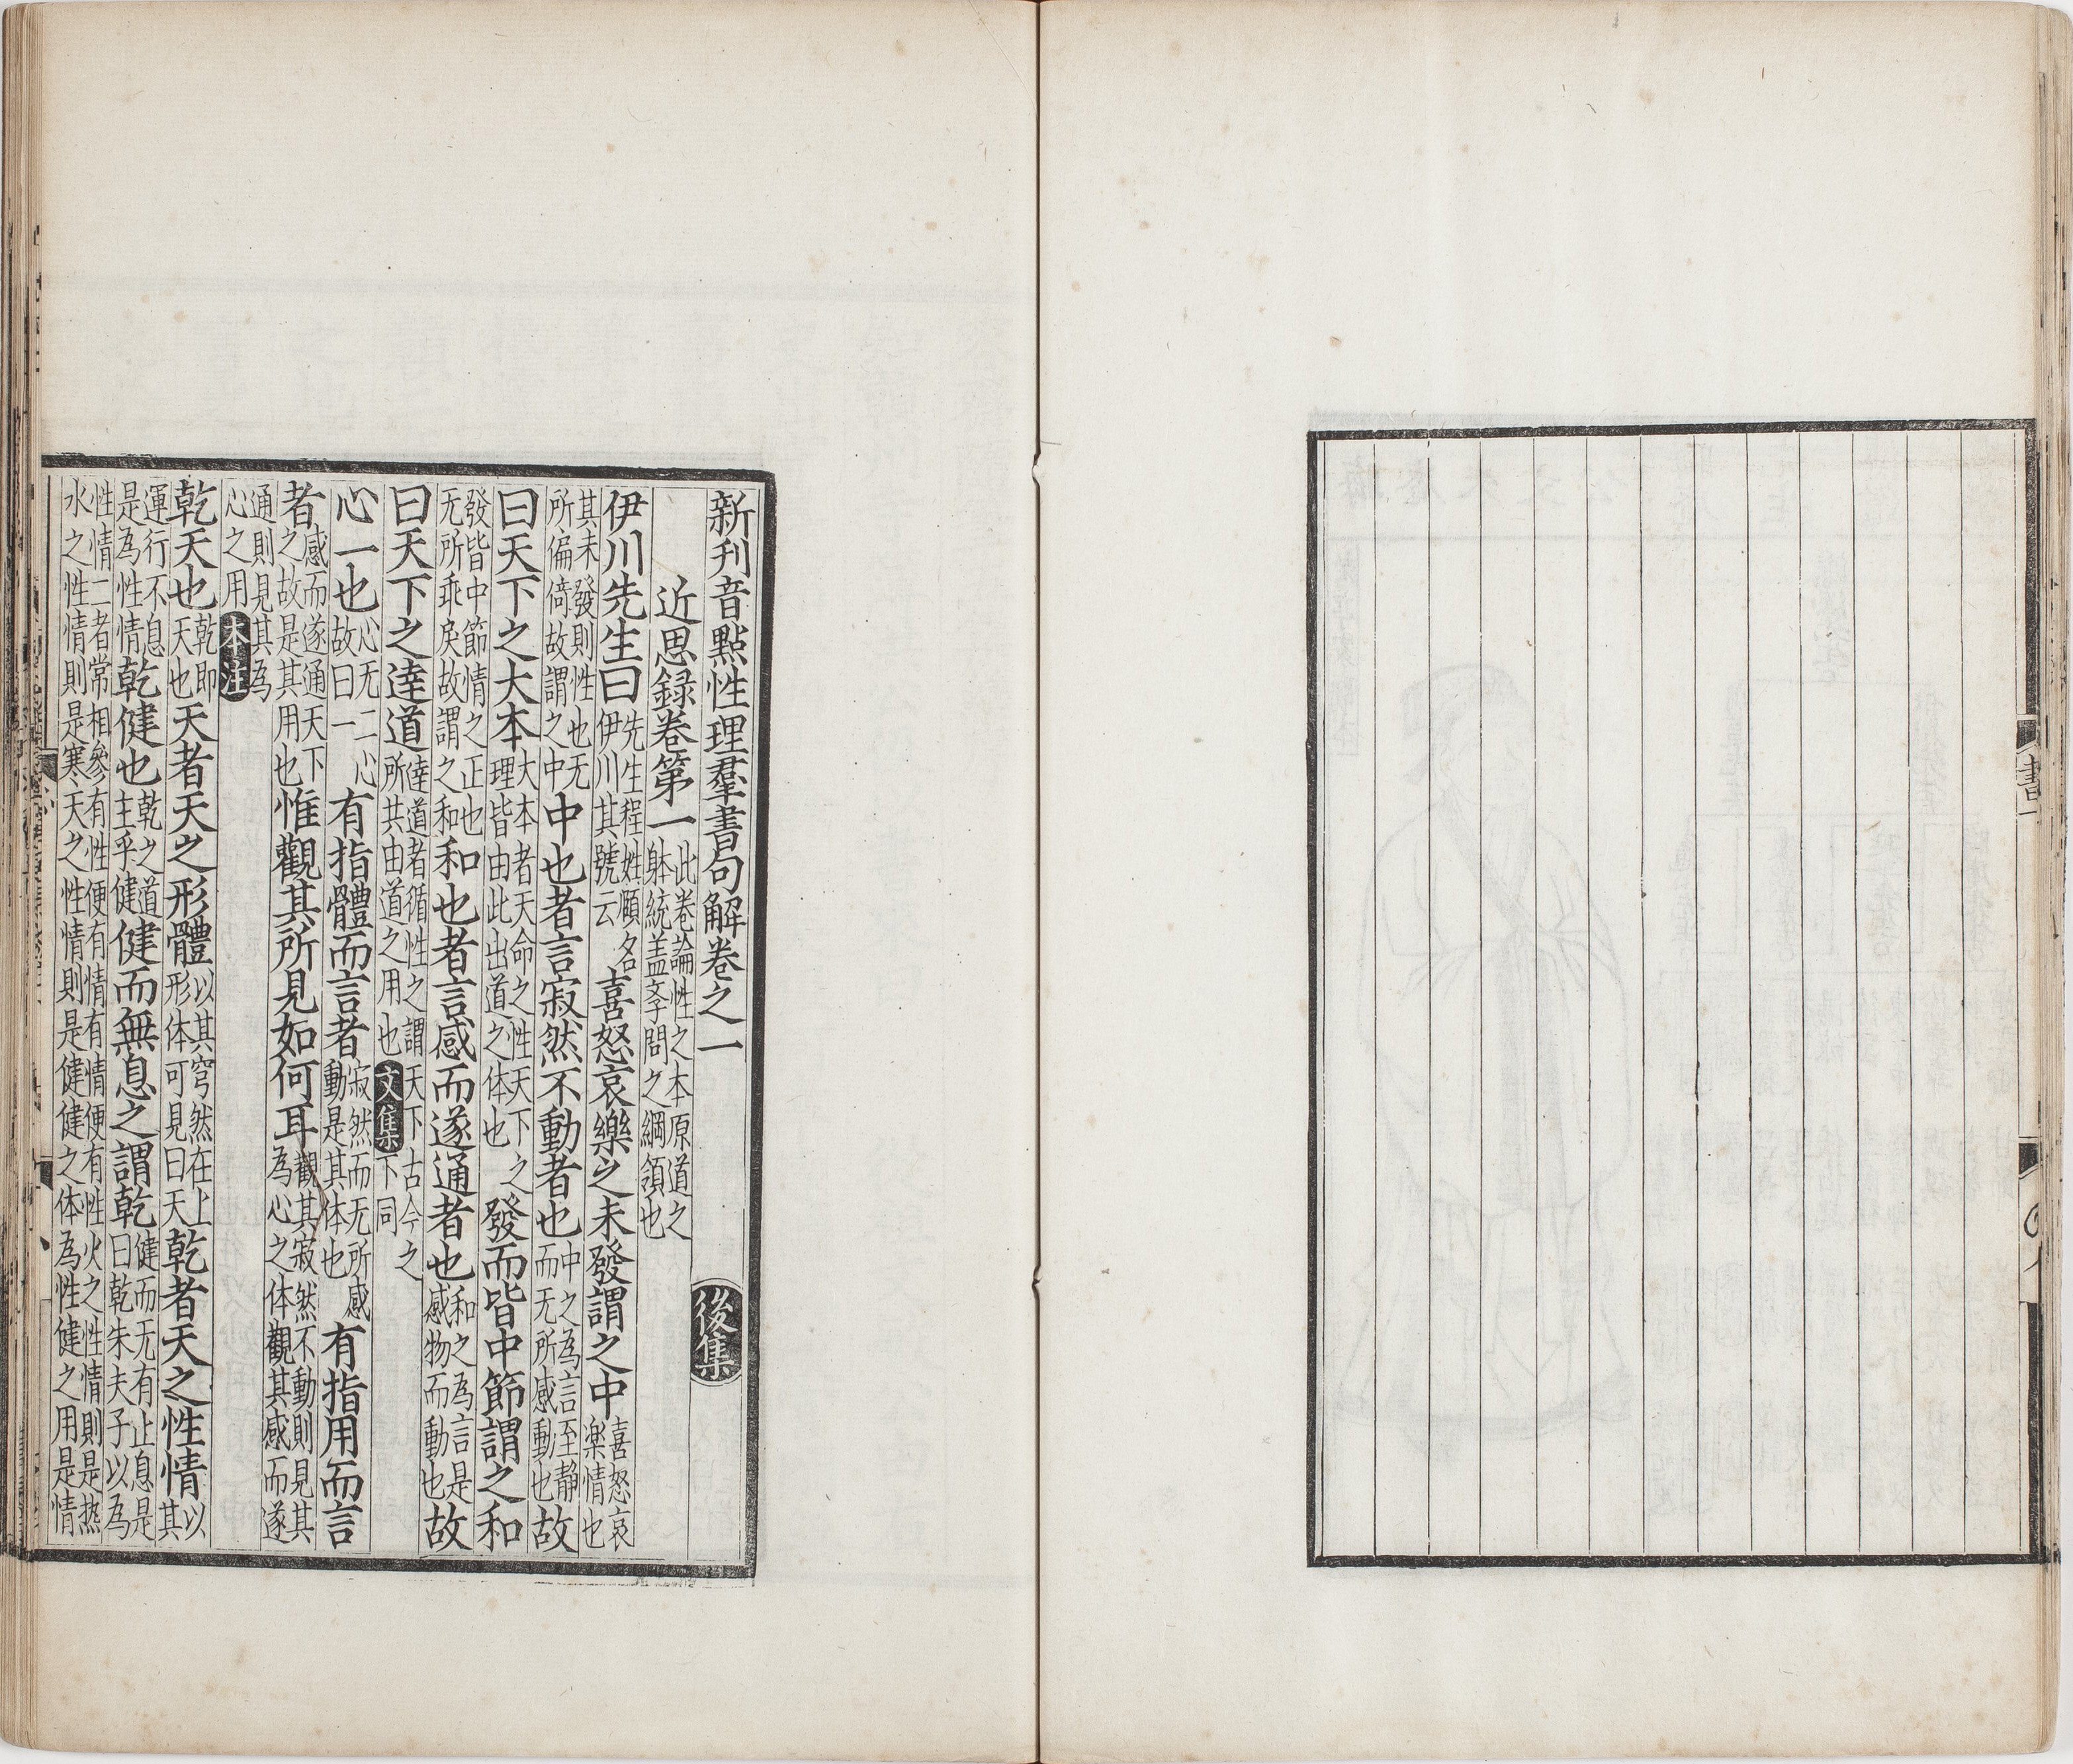 新刊音點性理羣書句解卷之一 後集
近思録卷第一 此卷論性之本原道之躰統盖斈問之綱領也
伊川先生曰 先生程姓頤名伊川其號云 喜怒哀樂之未發謂之中 喜怒哀楽情也
其未發則性也无所偏倚故謂之中 中也者言寂然不動者也 中之為言至静而无所感動也 故
曰天下之大本 大本者天命之性天下之理皆由此出道之体也 發而皆中節謂之和
發皆中節情之正也无所乖戾故謂之和 和也者言感而遂通者也 和之為言是感物而動也 故
曰天下之逹道 逹道者循性之謂天下古今之所共由道之用也 文集下同
心一也 心无二心故曰一 有指體而言者 寂然而无所感動是其体也 有指用而言
者 感而遂通天下之故是其用也 惟觀其所見如何耳 觀其寂然不動則見其為心之体觀其感而遂
通則見其為心之用 本注
乾天也 乾即天也 天者天之形體 以其穹然在上形体可見曰天 乾者天之性情 以其
運行不息是為性情 乾健也 乾之道主乎健 健而無息之謂乾 健而无有止息是曰乾朱夫子以為
性情二者常相參有性便有情有情便有性火之性情則是热水之性情則是寒天之性情則是健健之体為性健之用是情
書一